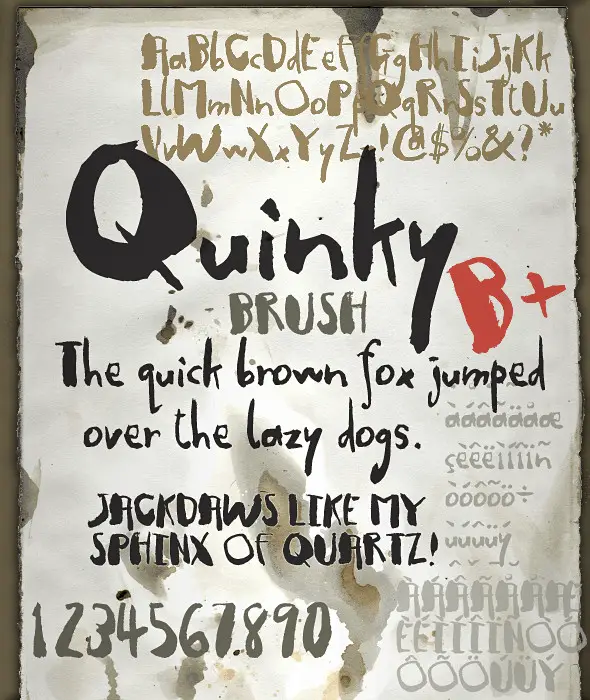 AaBbCcDdEeFfGgHhIiJjKk
LlMmNnOoPpQqRrSsTtUu
VvWwXxYyZz!@$%&?*
Quinky
B+
BRUSH
The quick brown fox jumped
over the lazy dogs.
àáâãäåæ
çèéêëìíîïñ
òóôõö÷
ùúûüý
JACKDAWS LIKE MY
SPHINX OF QUARTZ!
1234567890
ÀÁÂÃÄÅÆ
ÈÉÊËÌÍÎÏÑÒÓ
ÔÕÖÙÚÛÜÝ